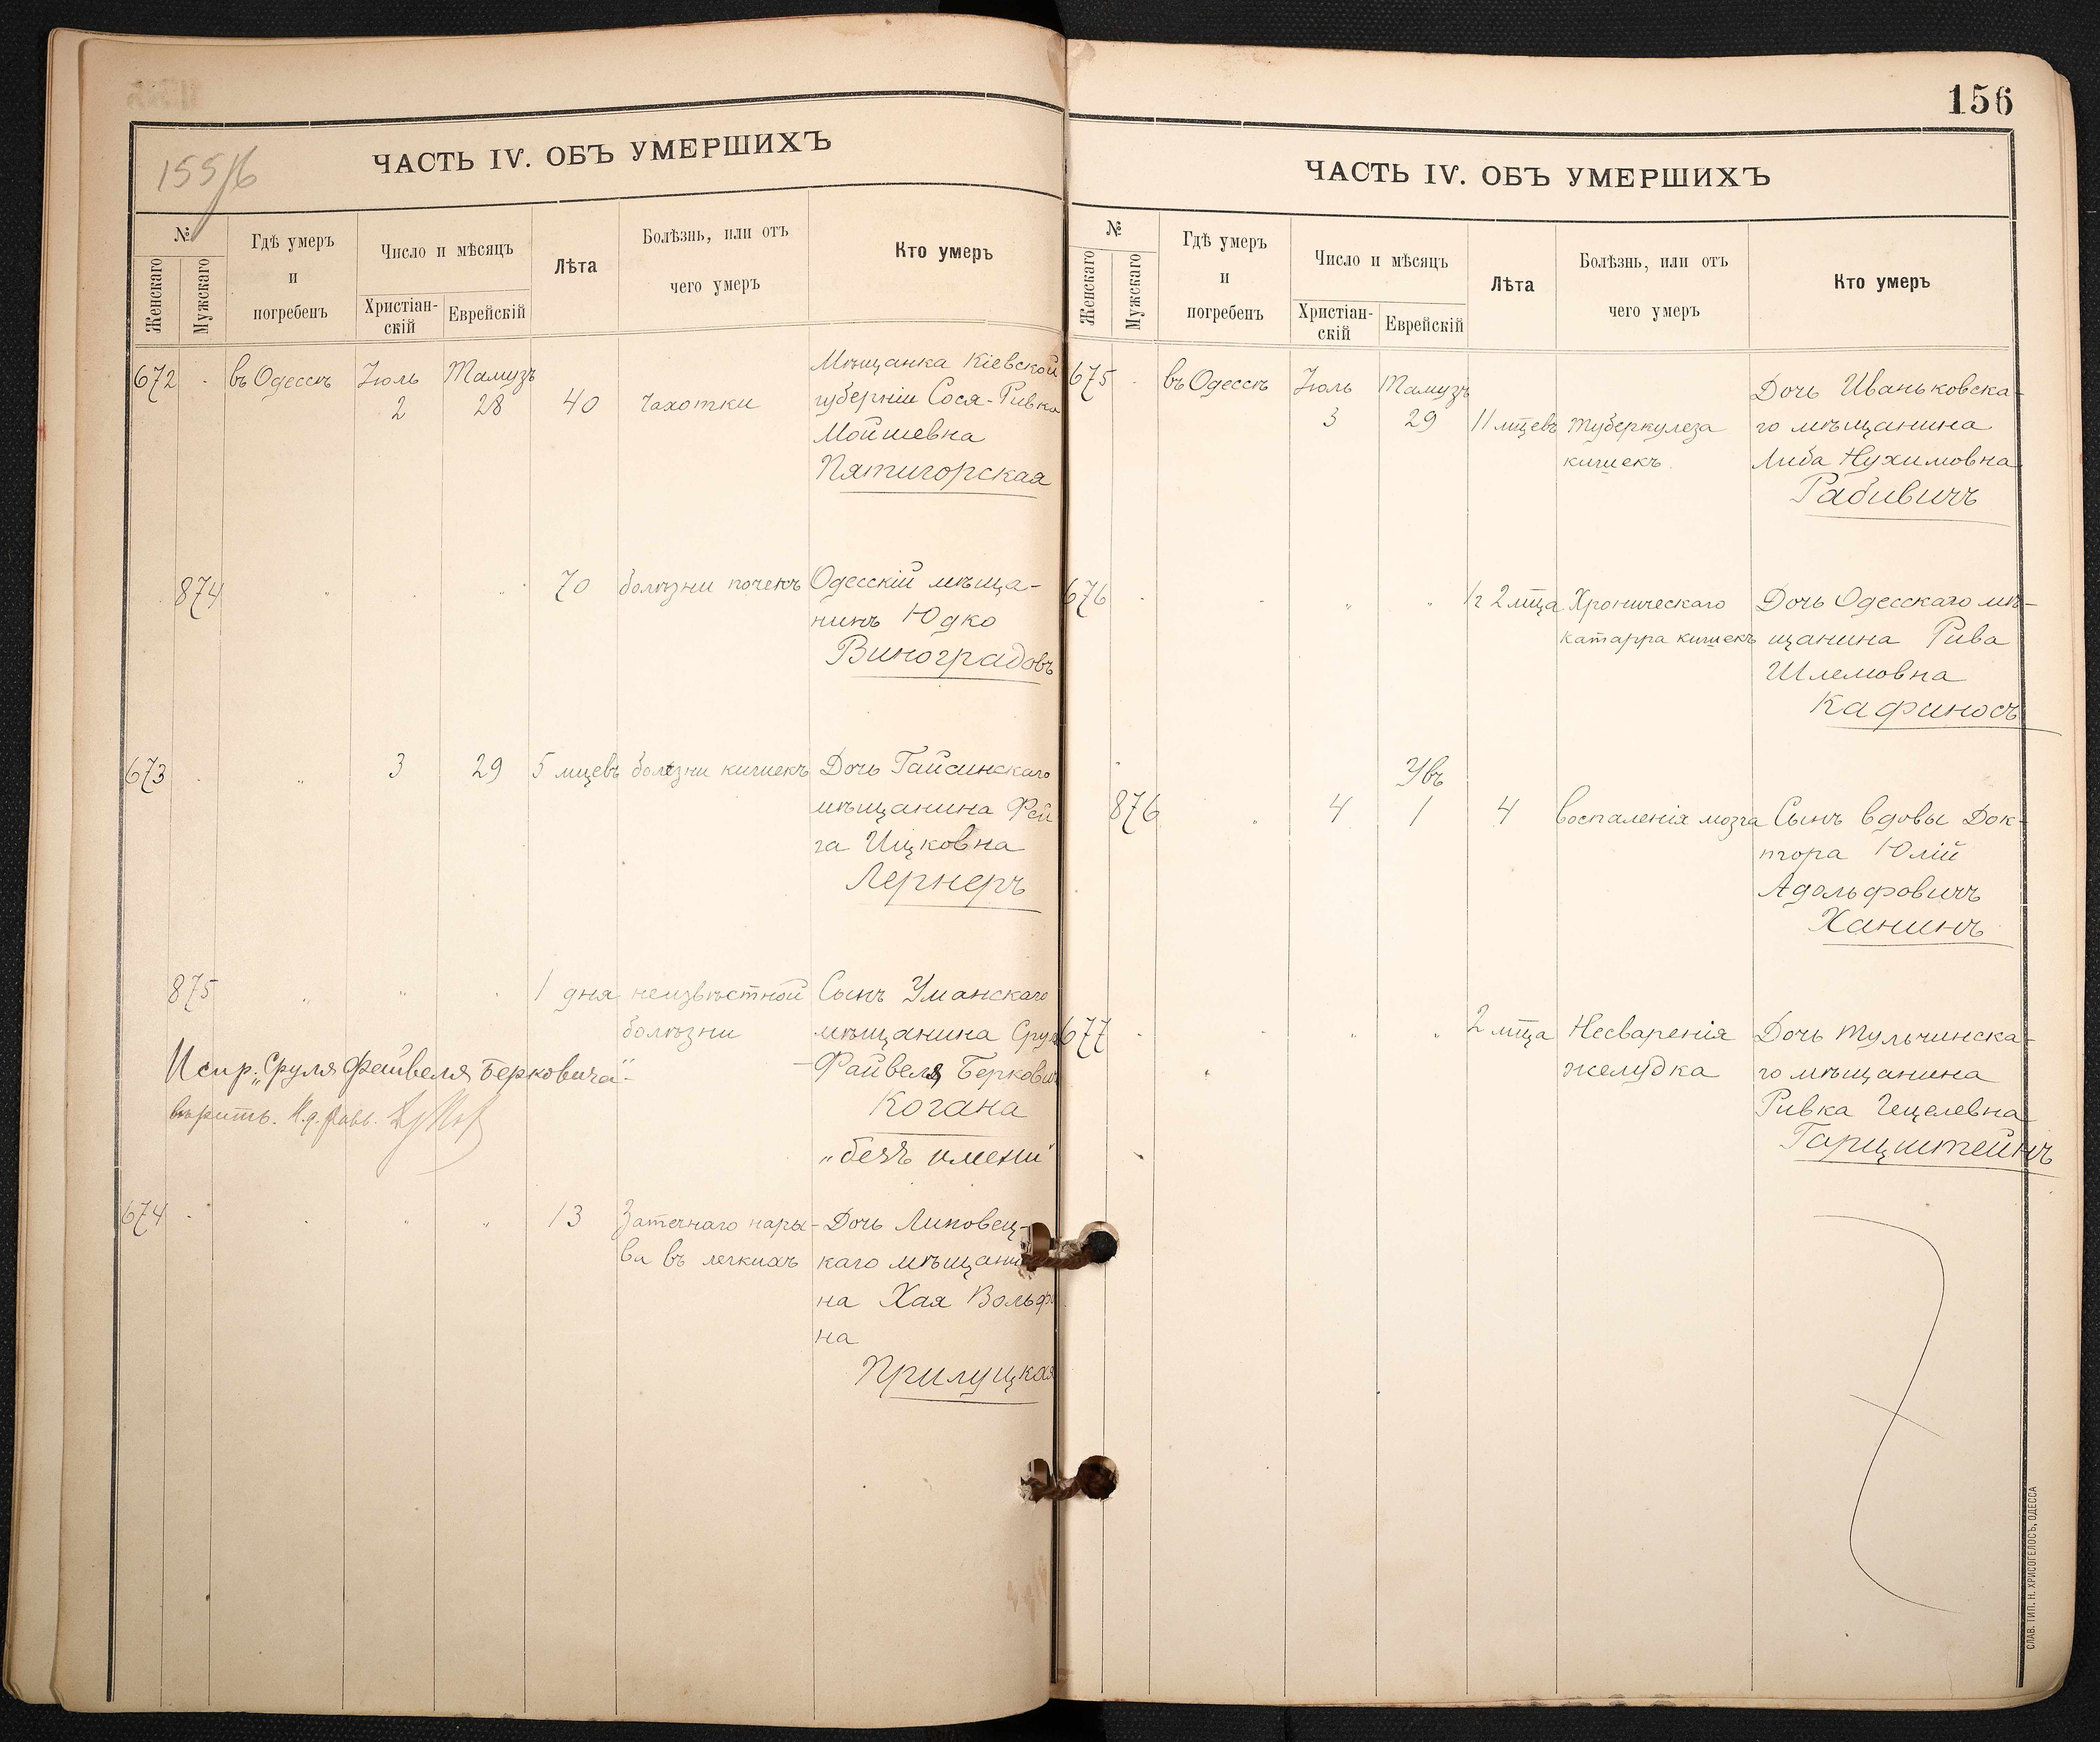 155/6
ЧАСТЬ IV. ОБЪ УМЕРШИХЪ
№
Женскаго
Мужскаго
Гдѣ умеръ
и
погребенъ
Число и мѣсяцъ
Христіан-
скій
Еврейскій
Лѣта
Болѣзнь, или отъ
чего умеръ
Кто умеръ
672 въ Одессѣ Іюль Тамузъ
2 28 40 Чахотки
Мѣщанка Кіевской
губерніи Сося-Ривка
Мойшевна
Пятигорская
874 " " " 70 болѣзни почекъ Одесскій мѣща-
нинъ Юдко
Виноградовъ
673 " 3 29 5 мцевъ болѣзни кишекъ Дочь Гайсинскаго
мѣщанина Фей
га Ицковна
Лернеръ
875 " " " 1 дня неизвѣстной Сынъ Уманскаго
болѣзни мѣщанина Сруля
-Файвеля Беркович
Когана
"безъ имени"
Испр. "Сруля Файвеля Берковича"-
вѣрить.
674 " " " 13 Затечнаго нары- Дочь Липовец-
ва въ легкихъ каго мѣщани
на Хая Вольфо
на
Прилуцкая
156
ЧАСТЬ IV. ОБЪ УМЕРШИХЪ
№
Женскаго
Мужскаго
Гдѣ умеръ
и
погребенъ
Число и мѣсяцъ
Христіан-
скій
Еврейскій
Лѣта
Болѣзнь, или отъ
чего умеръ
Кто умеръ
675 въ Одессѣ Іюль Тамузъ Дочь Иваньковска-
3 29 11 мцевъ туберкулеза го мѣщанина
кишекъ Либа Нухимовна
Рабивичъ
676 " " " 1 г 2 мца Хроническаго Дочь Одесскаго мѣ-
катарра кишекъ щанина Рива
Шлемовна
Кафиносъ
Увъ
876 " 4 1 4 воспаленія мозга Сынъ вдовы Док-
тора Юлій
Адольфовичъ
Ханинъ
677 " " " 2 мца Несваренія Дочь Тульчинска-
желудка го мѣщанина
Ривка Гецелевна
Гарцштейнъ
СЛАВ. ТИП. Н. ХРИСОГЕЛОСЪ, ОДЕССА